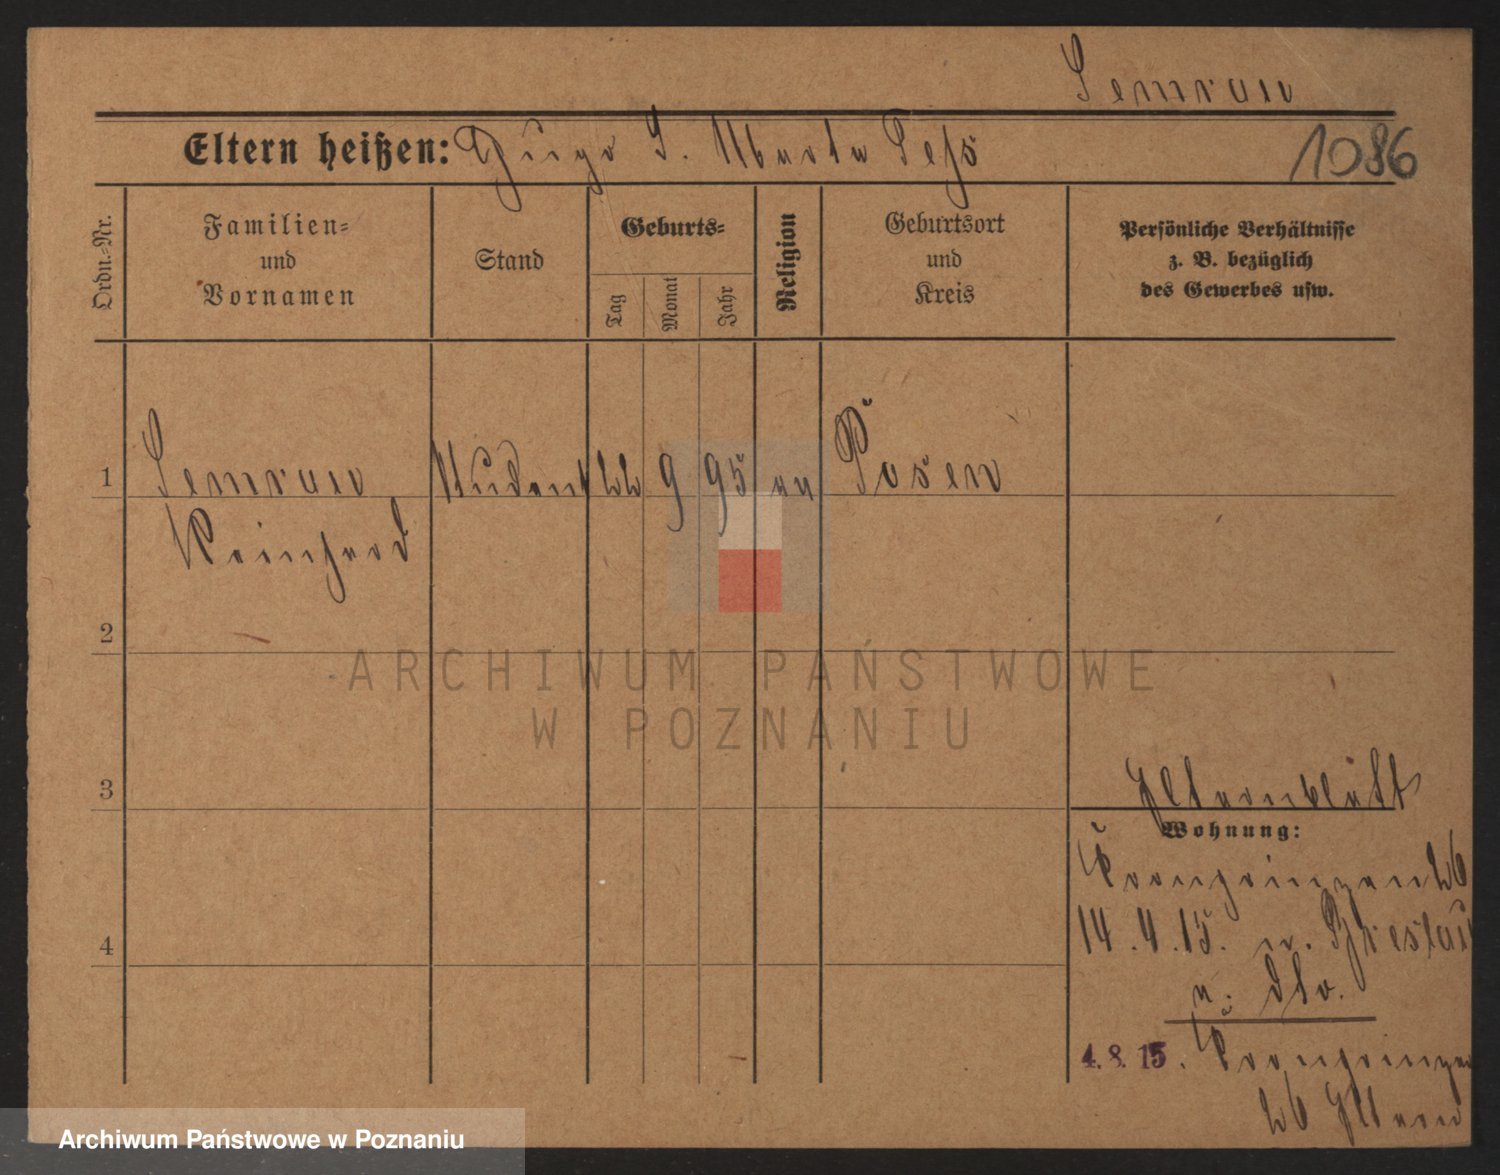 Semrau
Eltern heißen: Hugo S. Martha Seß
1086
Ordn.-Nr.
Familien-
und
Vornamen
Stand
Geburts-
Tag
Monat
Jahr
Religion
Geburtsort
und
Kreis
Persönliche Verhältnisse
z. B. bezüglich
des Gewerbes usw.
1 Semrau Student 22 9 95 ev Posen
Reinhard
2
ARCHIWUM PAŃSTWOWE
W POZNANIU
3
Elternblatt
Wohnung:
Kronprinzen 26
14.4.15. n. Breslau
4
v. dto.
4.8.15. Kronprinzen
26 Eltern
Archiwum Państwowe w Poznaniu